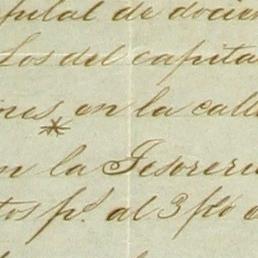 pital de docien
los del capita
nes en la calle
*
en la Tesoreri
tos ps. al 3 p%